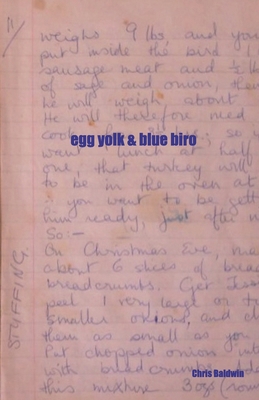 11/
weighs 9 lbs, and you
put inside the bird 1
sausage meat and ½ lb
of sage and onion, then
he will weigh about
He will therefore need
so y
egg yolk & blue biro
want lunch at half
one, that turkey will
to be in the oven at
you want to be gett
him ready, just after n
So:-
On Christmas Eve, ma
about 6 slices of bread
breadcrumbs. Get Jess
peel 1 very large or t
smaller onions, and ch
them as small as you
Put chopped onion int
with breadcrumbs
this mixture 3ozs
STUFFING.
Chris Baldwin